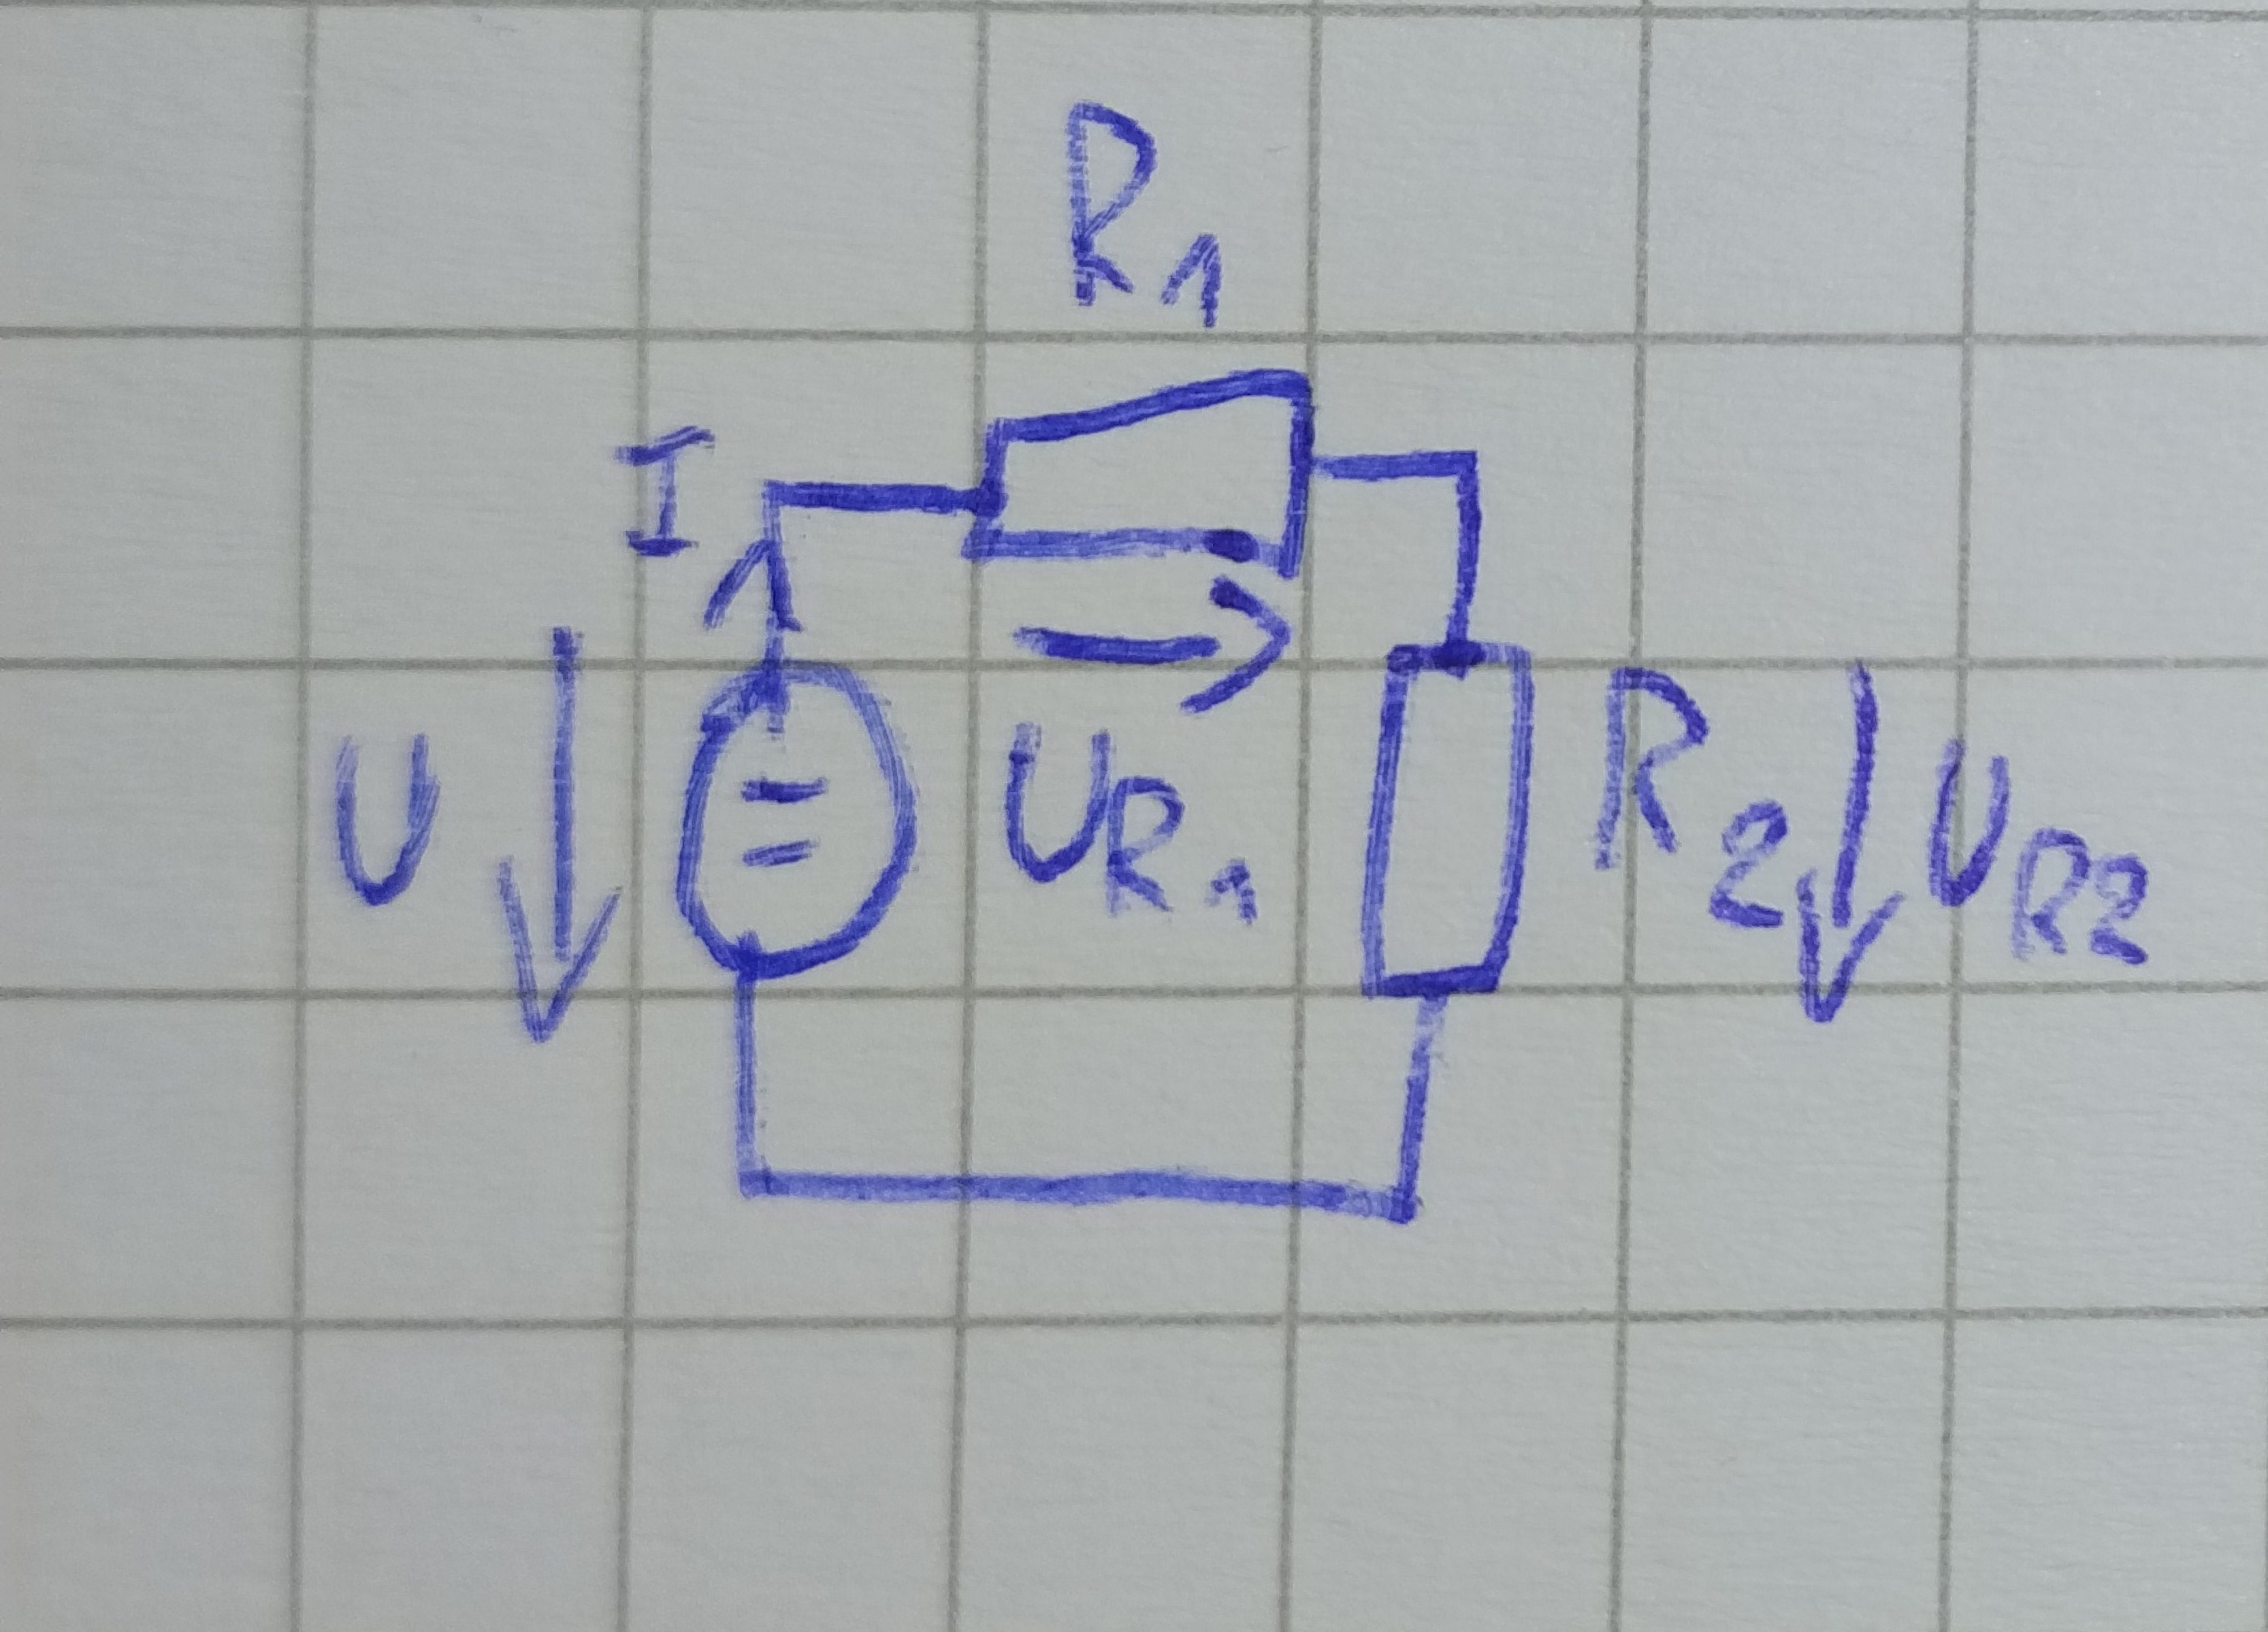 R1
I
U
UR1
R2
UR2